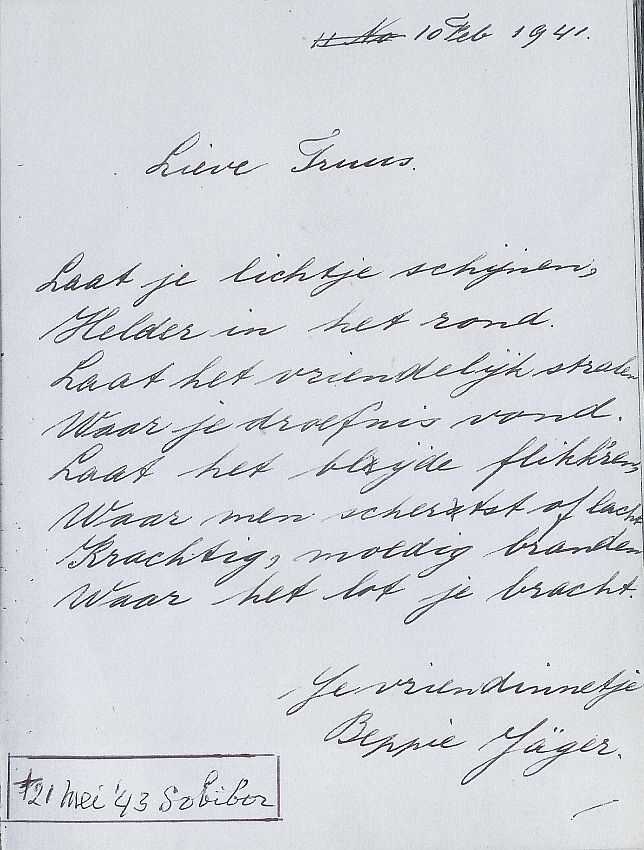 11 No 10 Feb 1941.
Lieve Truus.
Laat je lichtje schijnen,
Helder in het rond.
Laat het vriendelijk stralen
Waar je droefnis vond.
Laat het blijde flikk'ren,
Waar men schertst of lacht
Krachtig, moedig branden
Waar het lot je bracht.
Je vriendinnetje
Beppie Jäger.
†21 Mei '43 Sobibor